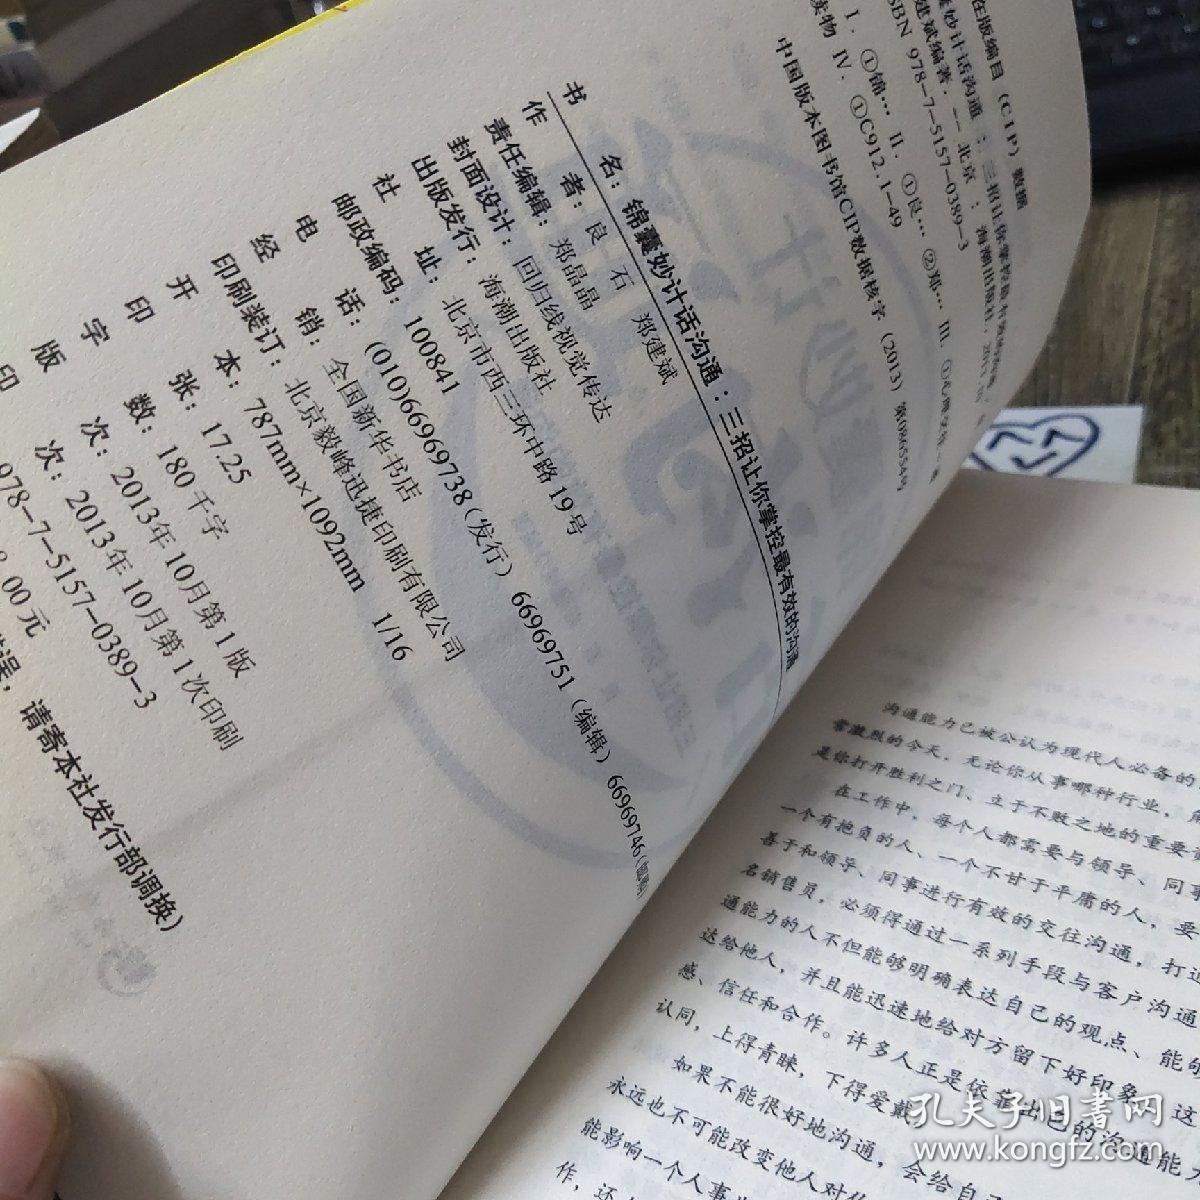 在版编目（CIP）数据
妙计话沟通：三招让你掌控最有效的沟通
建斌编著．－－北京：海潮出版社，2013.
ISBN 978-7-5157-0389-3
Ⅰ．①锦… Ⅱ．①良… ②郑… Ⅲ．①心理交往－
读物 Ⅳ．①C912.1-49
中国版本图书馆CIP数据核字（2013）第086554号
书 名：锦囊妙计话沟通：三招让你掌控最有效的沟通
作 者：良 石 郑建斌
责任编辑：郑晶晶
封面设计：回归线视觉传达
出版发行：海潮出版社
社 址：北京市西三环中路19号
邮政编码：100841
电 话：(010)66969738（发行）66969751（编辑）66969746（邮购）
经 销：全国新华书店
印刷装订：北京毅峰迅捷印刷有限公司
开 本：787mm×1092mm 1/16
印 张：17.25
字 数：180千字
版 次：2013年10月第1版
印 次：2013年10月第1次印刷
978-7-5157-0389-3
8.00元
错误，请寄本社发行部调换）
沟通能力已被公认为现代人必备的
常激烈的今天，无论你从事哪种行业，
是你打开胜利之门、立于不败之地的重要
在工作中，每个人都需要与领导、同事
一个有抱负的人、一个不甘于平庸的人，要
善于和领导、同事进行有效的交往沟通，打造
名销售员，必须得通过一系列手段与客户沟通
通能力的人不但能够明确表达自己的观点、能够
达给他人，并且能迅速地给对方留下好印象，这
感、信任和合作。许多人正是依靠出色的沟通能力
认同，上得青睐，下得爱戴
如果不能很好地沟通，会给自
永远也不可能改变他人对你
能影响一个人事业
作，还
孔夫子旧书网
www.kongfz.com